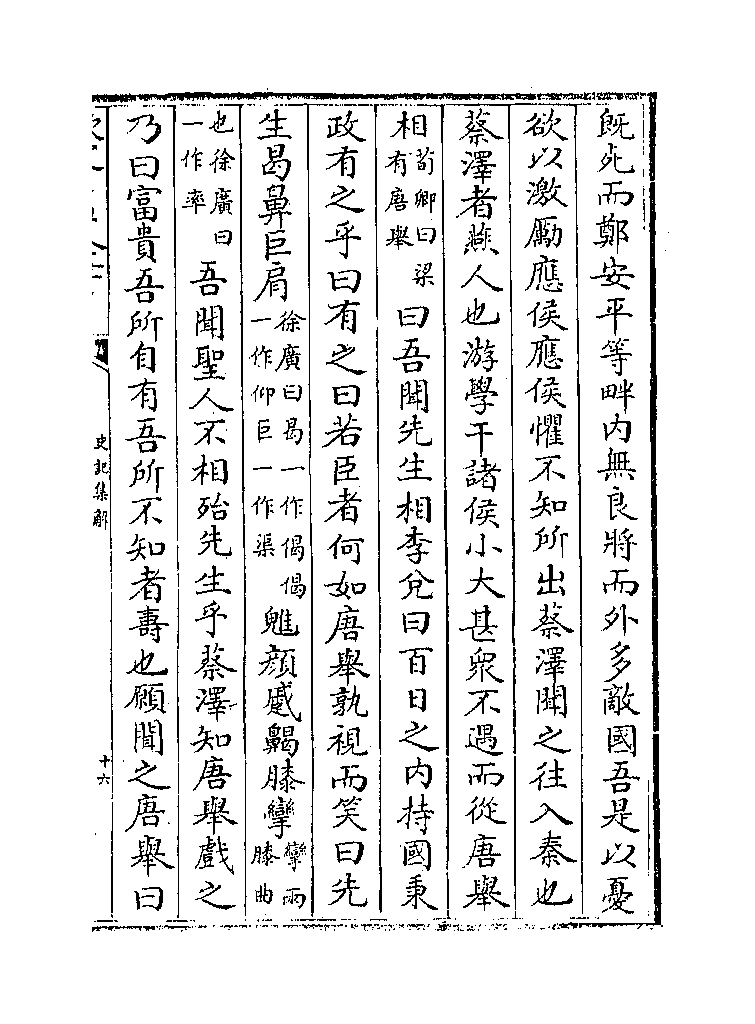 既死而鄭安平等畔内無良將而外多敵國吾是以憂
欲以激勵應侯應侯懼不知所出蔡澤聞之往入秦也
蔡澤者燕人也游學干諸侯小大甚衆不遇而從唐舉
相荀卿曰梁有唐舉曰吾聞先生相李兌曰百日之内持國秉
政有之乎曰有之曰若臣者何如唐舉孰視而笑曰先
生曷鼻巨肩徐廣曰曷一作偈偈一作仰巨一作渠魋顔蹙齃膝攣攣兩膝曲
也徐廣曰一作率吾聞聖人不相殆先生乎蔡澤知唐舉戲之
乃曰富貴吾所自有吾所不知者壽也願聞之唐舉曰
史記集解
十六